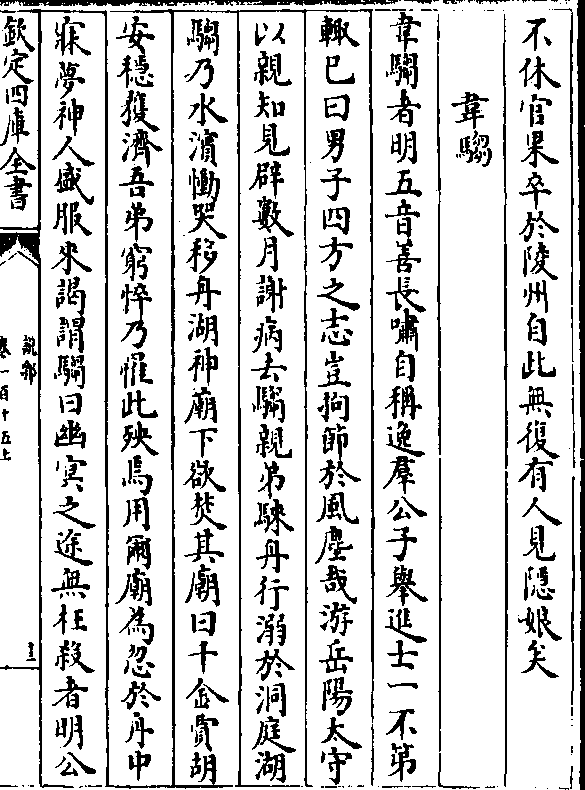 不休官果卒於陵州自此無復有人見隱娘矣
韋騶
韋騶者明五音善長嘯自稱逸羣公子舉進士一不第
輙已曰男子四方之志豈拘節於風塵哉游岳陽太守
以親知見辟數月謝病去騶親弟騋舟行溺於洞庭湖
騶乃水濱慟哭移舟湖神廟下欲焚其廟曰千金賈胡
安穩獲濟吾弟窮悴乃罹此殃焉用爾廟為忽於舟中
寐夢神人盛服來謁謂騶曰幽冥之途無枉殺者明公
欽定四庫全書
說郛
卷一百十五上